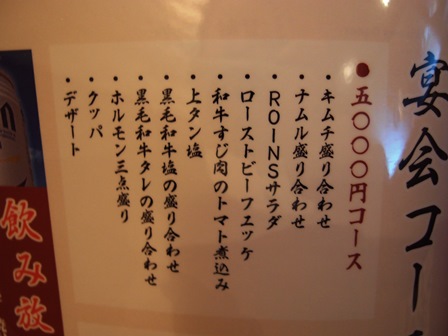 宴会コー
●五〇〇〇円コース
・キムチ盛り合わせ
・ナムル盛り合わせ
・ROINSサラダ
・ローストビーフユッケ
・和牛すじ肉のトマト煮込み
・上タン塩
・黒毛和牛塩の盛り合わせ
・黒毛和牛タレの盛り合わせ
・ホルモン三点盛り
・クッパ
・デザート
飲み放